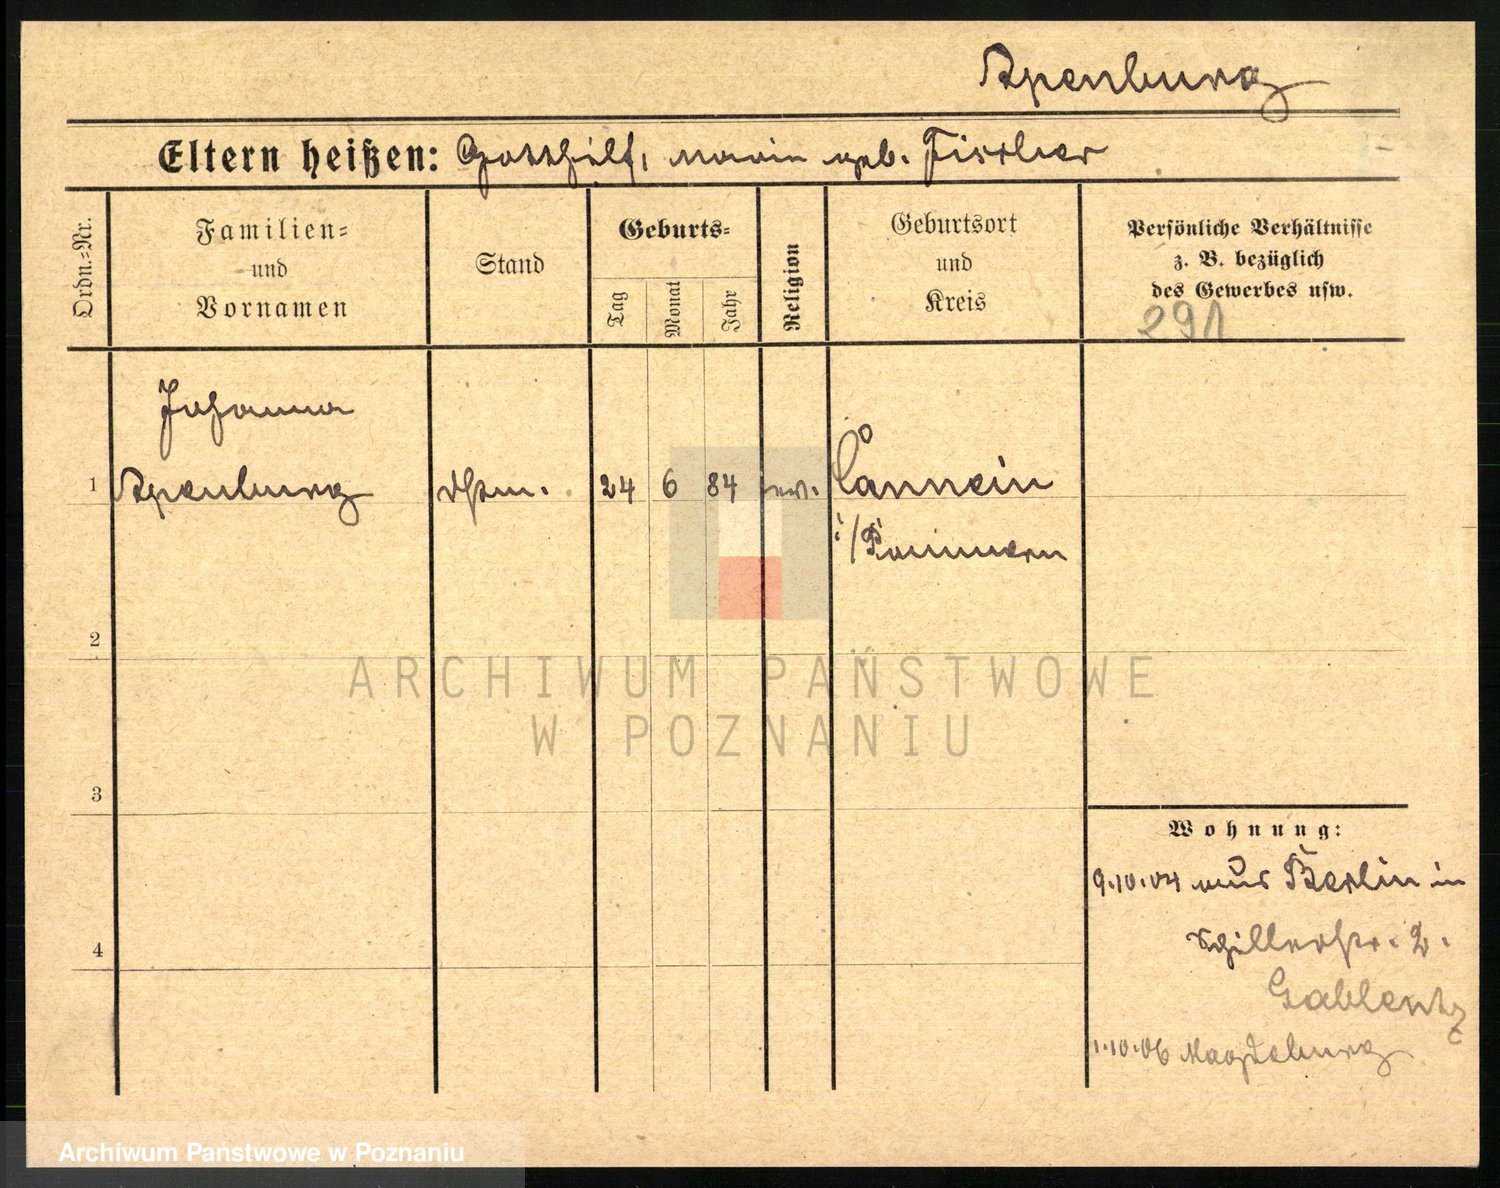 Apenburg
Eltern heißen: Gotthilf, Marie geb. Fischer
Ordn.-Nr.
Familien-
und
Vornamen
Stand
Geburts-
Tag
Monat
Jahr
Religion
Geburtsort
und
Kreis
Persönliche Verhältnisse
z. B. bezüglich
des Gewerbes usw.
291
Johanna
1 Apenburg 24 6 84 ev. Cannein
i/Pommern
2
3
4
Wohnung:
9.10.04 aus Berlin in
Schillerstr. 2.
Gablentz
1.10.06 Magdeburg
ARCHIWUM PAŃSTWOWE
W POZNANIU
Archiwum Państwowe w Poznaniu